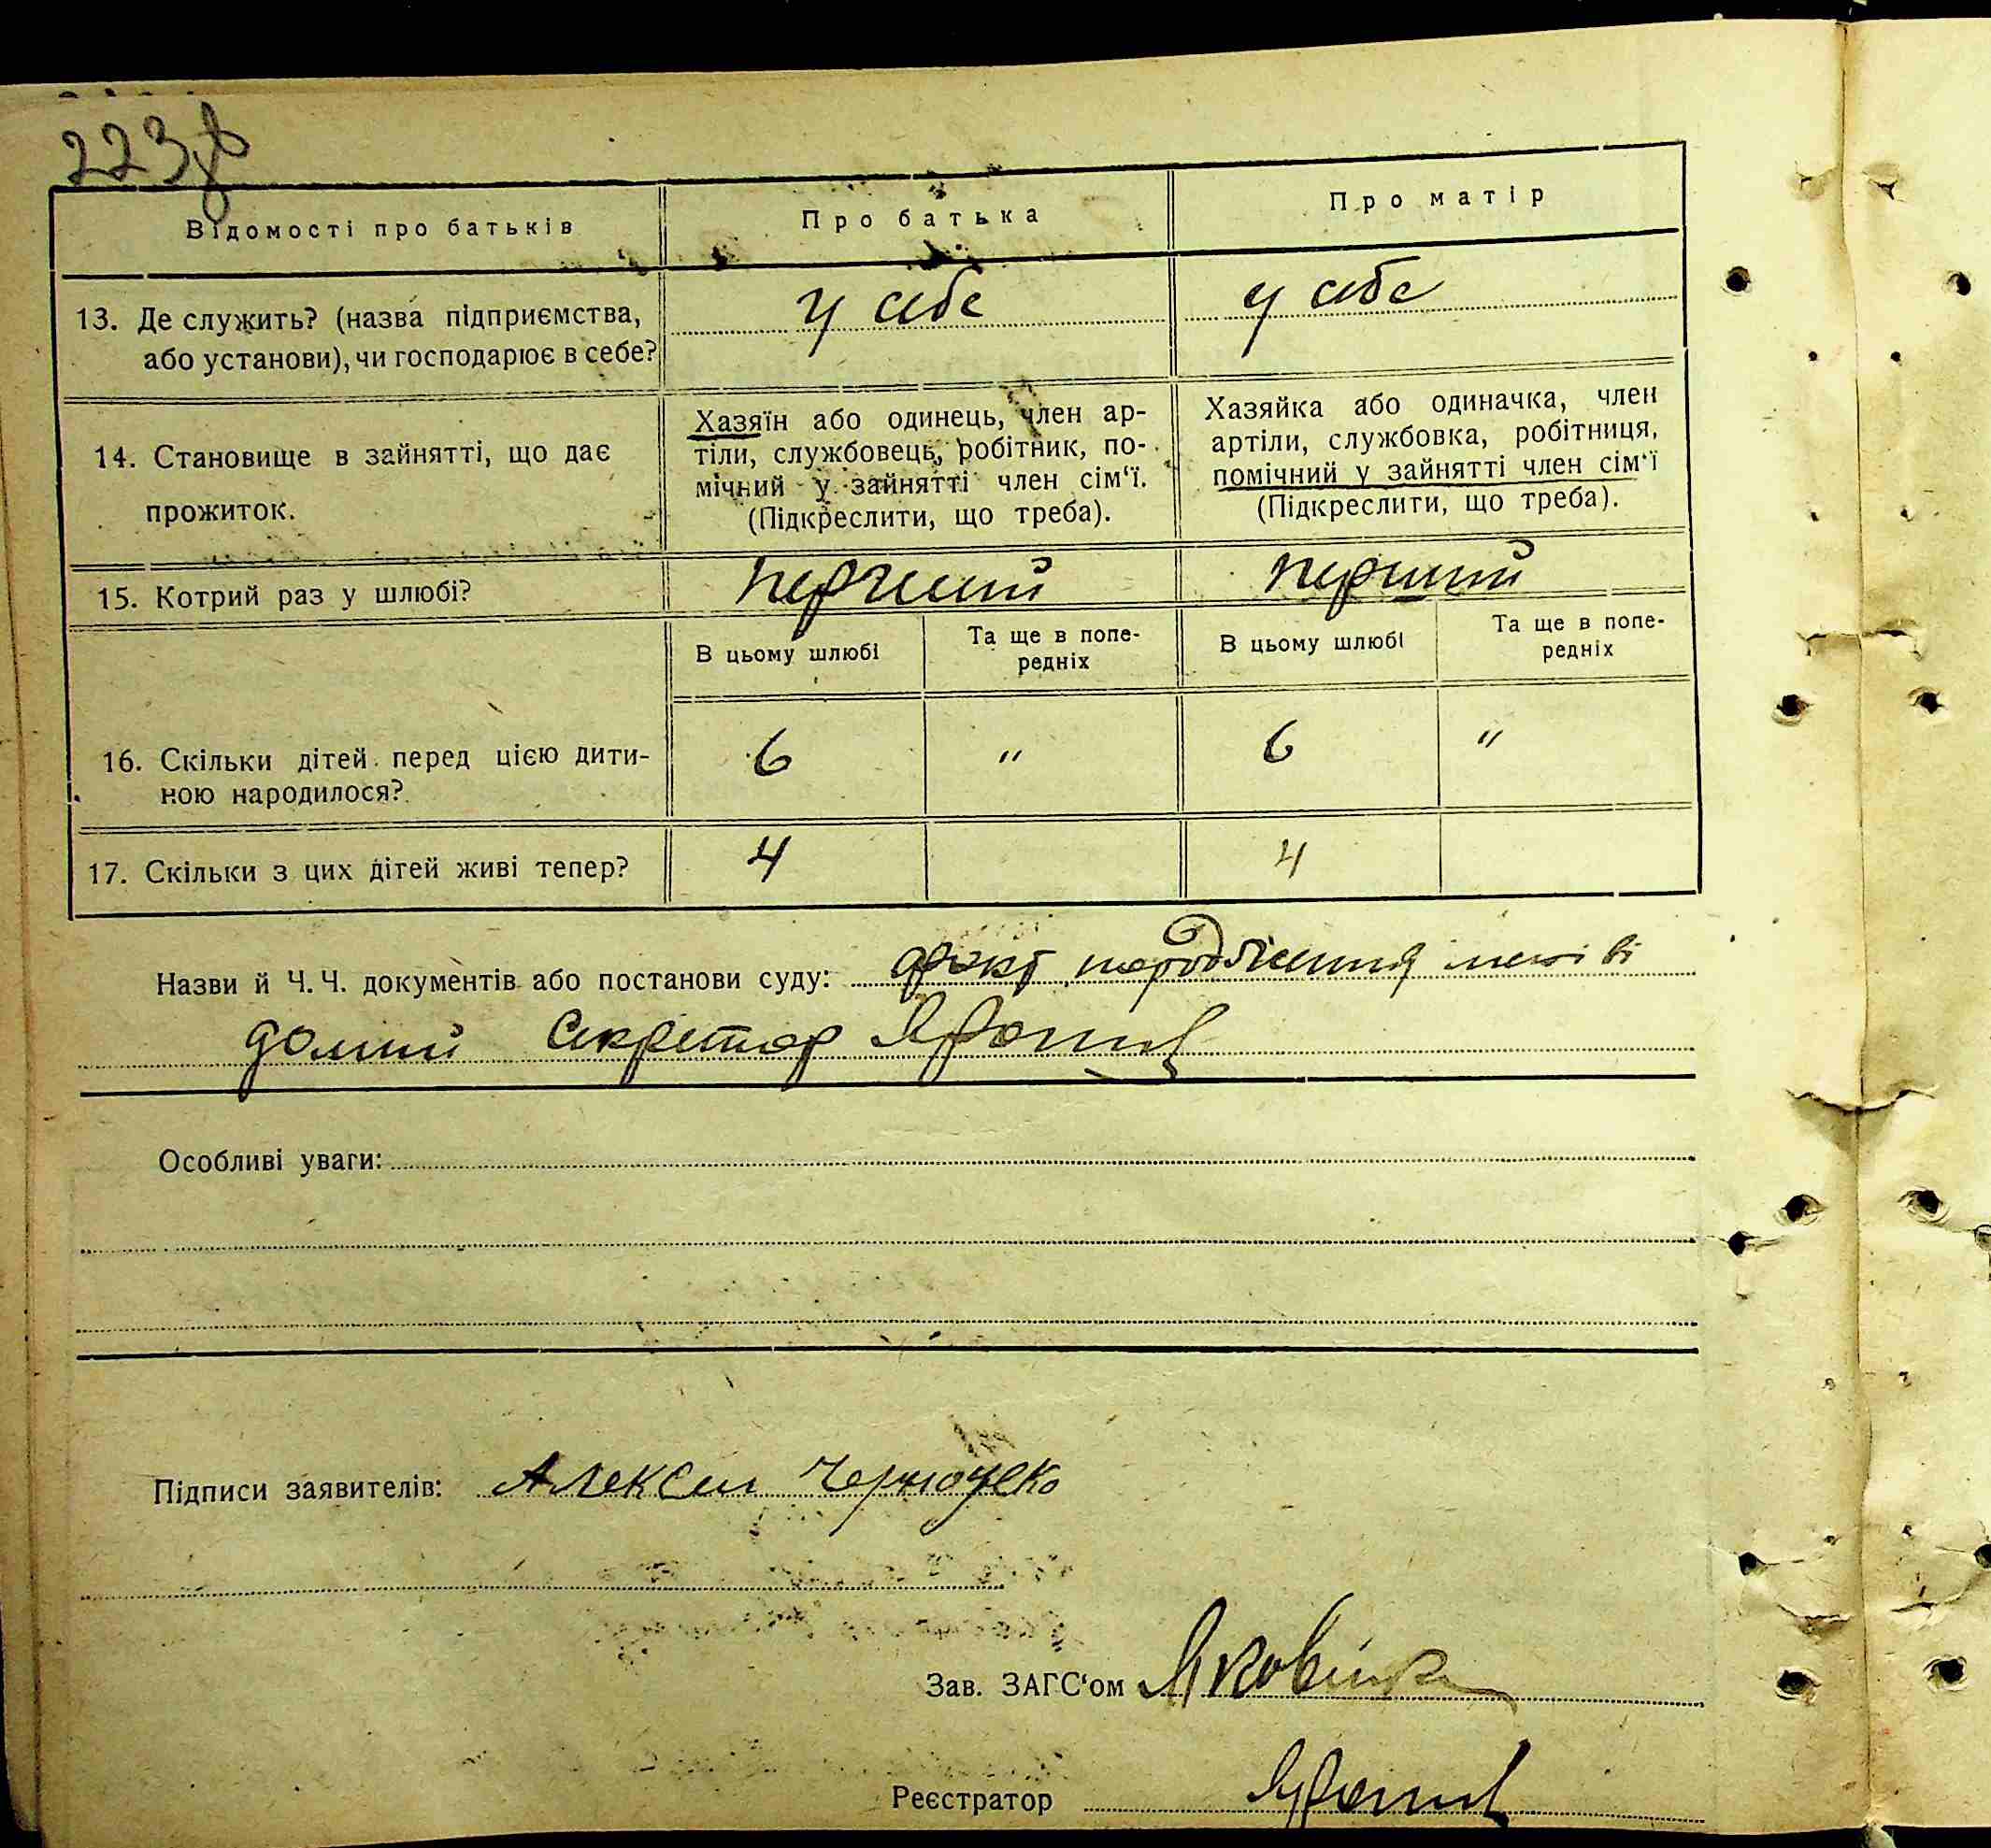 223
Відомості про батьків
Про батька
Про матір
13. Де служить? (назва підприємства,
або установи), чи господарює в себе?
у себе
у себе
14. Становище в зайнятті, що дає
прожиток.
Хазяїн або одинець, член ар-
тіли, службовець, робітник, по-
мічний у зайнятті член сім'ї.
(Підкреслити, що треба).
Хазяйка або одиначка, член
артіли, службовка, робітниця,
помічний у зайнятті член сім'ї
(Підкреслити, що треба).
15. Котрий раз у шлюбі?
перший
перший
В цьому шлюбі
Та ще в попе-
редніх
В цьому шлюбі
Та ще в попе-
редніх
16. Скільки дітей перед цією дити-
ною народилося?
6
"
6
"
17. Скільки з цих дітей живі тепер?
4
4
Назви й Ч. Ч. документів або постанови суду: факт народження мені ві
домий Секретар
Особливі уваги:
Підписи заявителів: Алексей
Зав. ЗАГС'ом
Реєстратор